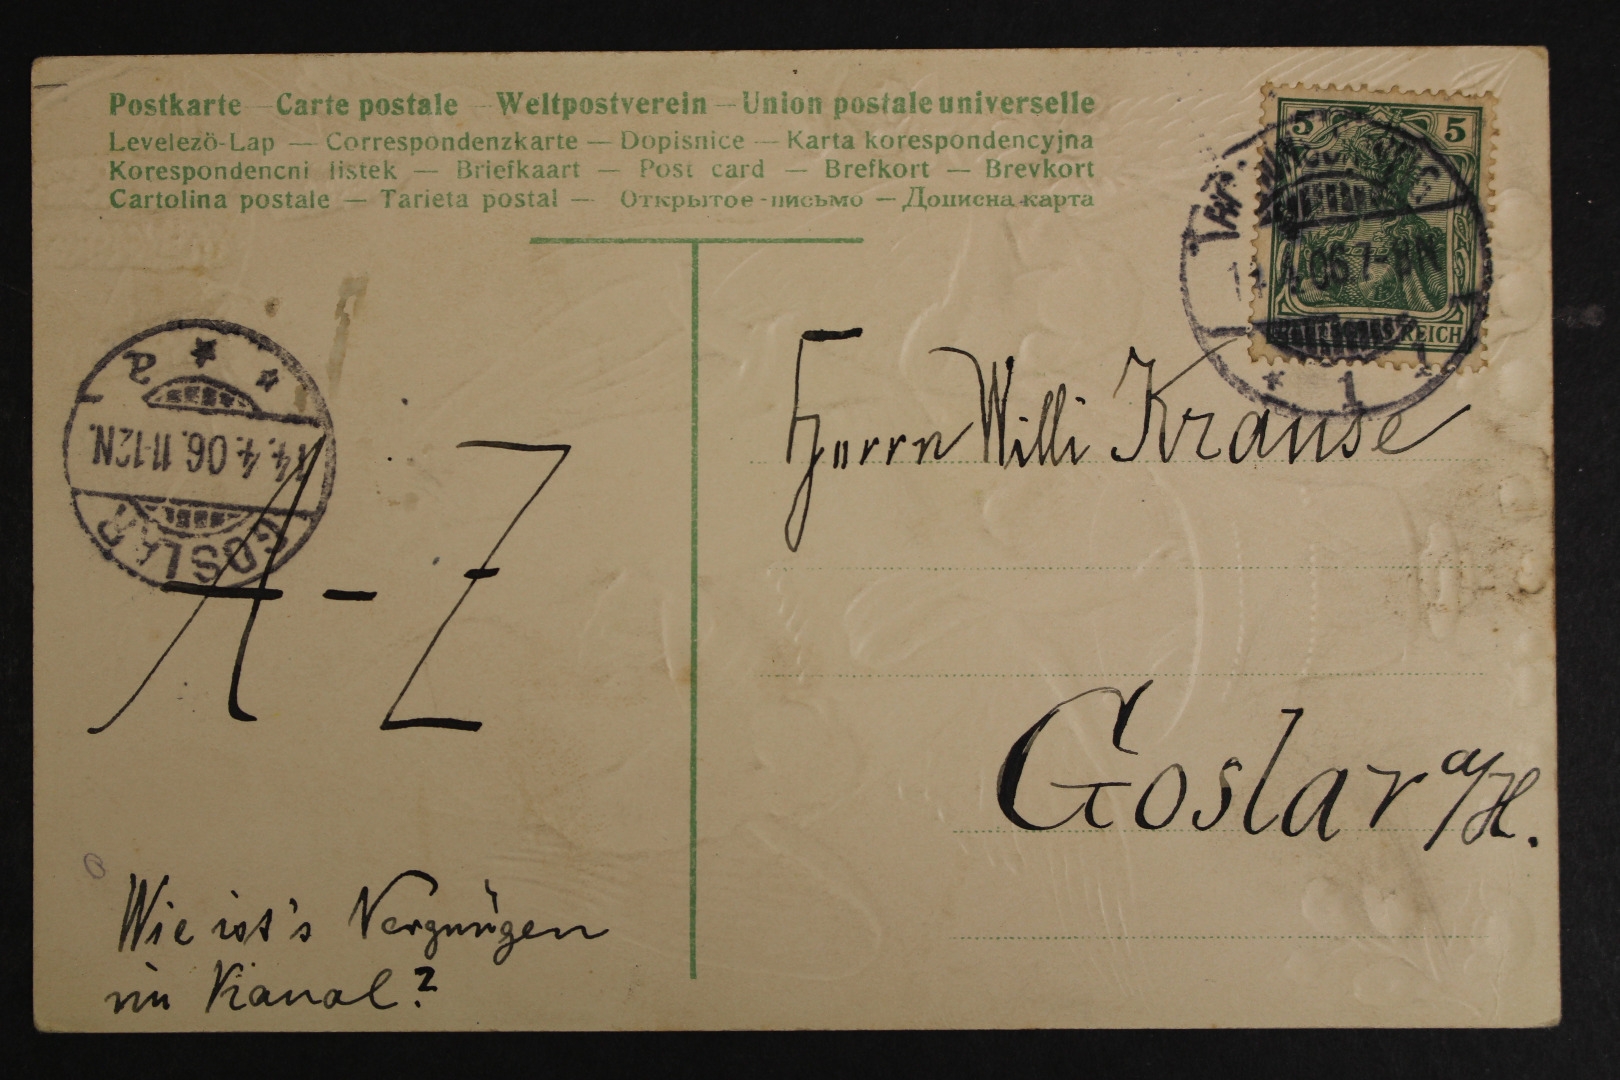 Postkarte — Carte postale — Weltpostverein — Union postale universelle
Levelezö-Lap — Correspondenzkarte — Dopisnice — Karta korespondencyjna
Korespondencni listek — Briefkaart — Post card — Brefkort — Brevkort
Cartolina postale — Tarieta postal — Открытое письмо — Дописна карта
5 5
06 7-8N
REICH
* 1 *
14.4.06.11-12N.
GOSLAR
Herrn Willi Krause
A-Z
Goslar a/H.
Wie ist's Vergnügen
im Kanal?